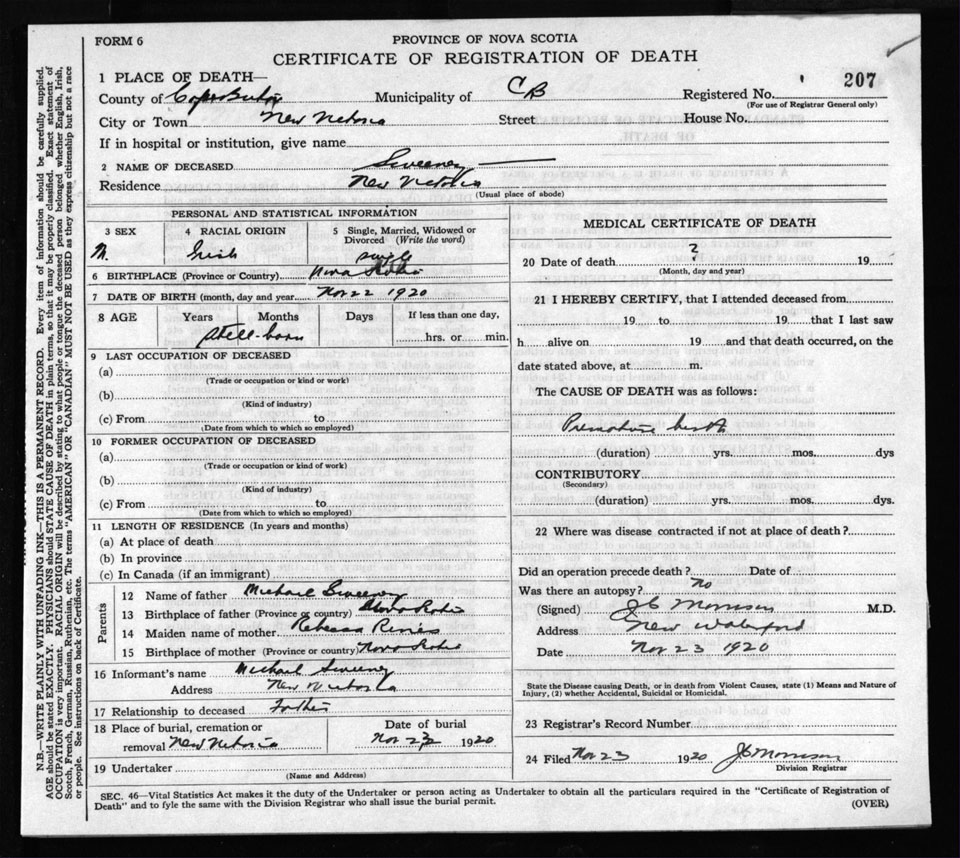 FORM 6
PROVINCE OF NOVA SCOTIA
CERTIFICATE OF REGISTRATION OF DEATH
207
1 PLACE OF DEATH—
County of Cape Breton Municipality of CB Registered No.
(For use of Registrar General only)
City or Town New Victoria Street House No.
If in hospital or institution, give name
2 NAME OF DECEASED Sweeney
Residence New Victoria
(Usual place of abode)
PERSONAL AND STATISTICAL INFORMATION
3 SEX 4 RACIAL ORIGIN 5 Single, Married, Widowed or Divorced (Write the word)
M. Irish single
6 BIRTHPLACE (Province or Country) Nova Scotia
7 DATE OF BIRTH (month, day and year) Nov 22 1920
8 AGE Years Months Days If less than one day,
hrs. or min.
Still-born
9 LAST OCCUPATION OF DECEASED
(a)
(Trade or occupation or kind or work)
(b)
(Kind of industry)
(c) From to
(Date from which to which so employed)
10 FORMER OCCUPATION OF DECEASED
(a)
(Trade or occupation or kind of work)
(b)
(Kind of industry)
(c) From to
(Date from which to which so employed)
11 LENGTH OF RESIDENCE (In years and months)
(a) At place of death
(b) In province
(c) In Canada (if an immigrant)
Parents
12 Name of father Michael Sweeney
13 Birthplace of father (Province or country) Nova Scotia
14 Maiden name of mother Rebecca
15 Birthplace of mother (Province or country) Nova Scotia
16 Informant's name Michael Sweeney
Address New Victoria
17 Relationship to deceased Father
18 Place of burial, cremation or removal New Victoria
Date of burial
Nov 23 1920
19 Undertaker
(Name and Address)
MEDICAL CERTIFICATE OF DEATH
20 Date of death ? 19
(Month, day and year)
21 I HEREBY CERTIFY, that I attended deceased from
19 to 19 that I last saw
h alive on 19 and that death occurred, on the
date stated above, at m.
The CAUSE OF DEATH was as follows:
Premature birth
(duration) yrs. mos. dys
CONTRIBUTORY
(Secondary)
(duration) yrs. mos. dys.
22 Where was disease contracted if not at place of death?
Did an operation precede death? Date of
Was there an autopsy? No
(Signed) JC Morrison M.D.
Address New Waterford
Date Nov 23 1920
State the Disease causing Death, or in death from Violent Causes, state (1) Means and Nature of
Injury, (2) whether Accidental, Suicidal or Homicidal.
23 Registrar's Record Number
24 Filed Nov 23 1920 JC Morrison
Division Registrar
SEC. 46—Vital Statistics Act makes it the duty of the Undertaker or person acting as Undertaker to obtain all the particulars required in the "Certificate of Registration of
Death" and to fyle the same with the Division Registrar who shall issue the burial permit.
(OVER)
N.B.—WRITE PLAINLY WITH UNFADING INK—THIS IS A PERMANENT RECORD. Every item of information should be carefully supplied.
AGE should be stated EXACTLY. PHYSICIANS should STATE CAUSE OF DEATH in plain terms, so that it may be properly classified. Exact statement of
OCCUPATION is very important. RACIAL ORIGIN will be described by stating to what people or tongue the deceased person belonged, whether English, Irish,
Scotch, French, German, Russian, Ruthenian, etc. The terms "AMERICAN" OR "CANADIAN" MUST NOT BE USED as they express citizenship but not a race
or people. See instructions on back of Certificate.